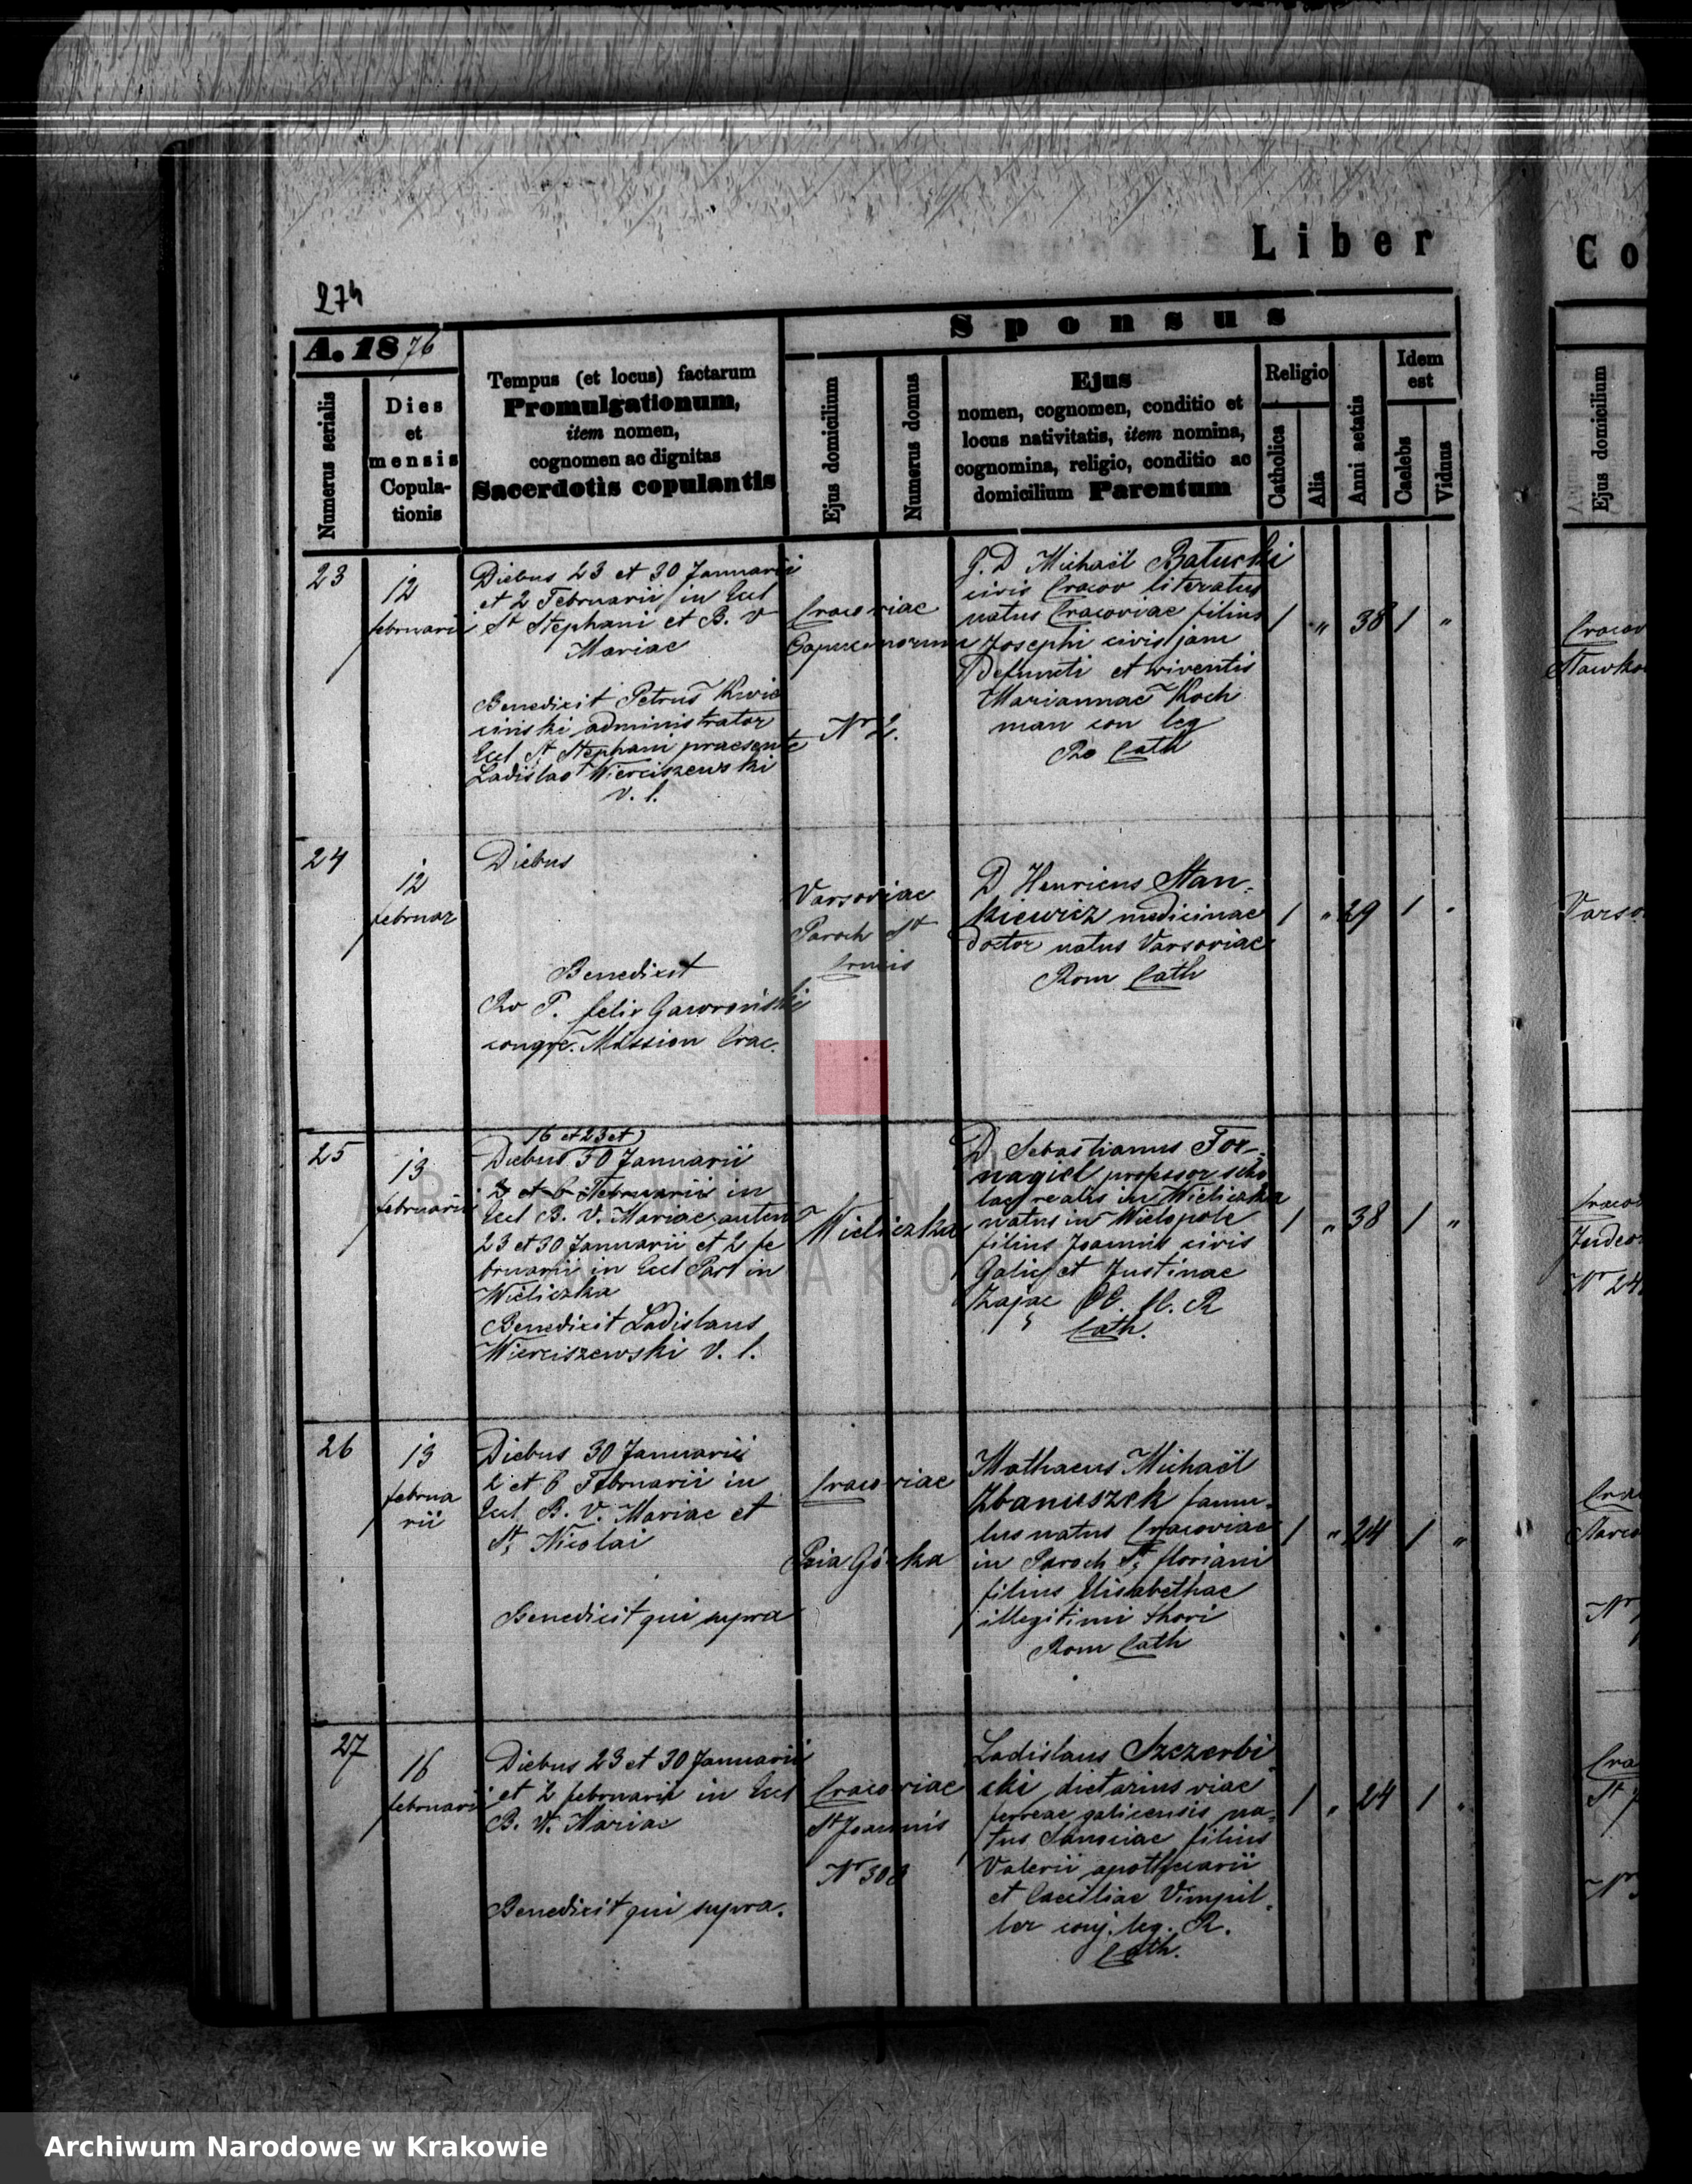 Liber
Co
274
A. 1876
Sponsus
Numerus serialis
Dies
et
mensis
Copula-
tionis
Tempus (et locus) factarum
Promulgationum,
item nomen,
cognomen ac dignitas
Sacerdotis copulantis
Ejus domicilium
Numerus domus
Ejus
nomen, cognomen, conditio et
locus nativitatis, item nomina,
cognomina, religio, conditio ac
domicilium Parentum
Religio
Catholica
Alia
Anni aetatis
Idem
est
Caelebs
Viduus
Ejus domicilium
23
12
februarii
Diebus 23 et 30 Januarii
et 2 Februarii in Eccl
St Stephani et B. V
Mariae
Benedixit Petrus Kwie
ciński administrator
Eccl St Stephani praesente
Ladislao Wierciszewski
V. C.
Cracoviae
Capucinorum
Nr 2.
G. D Michaël Bałucki
civis Cracov literatus
natus Cracoviae filius
Josephi civis jam
Defuncti et viventis
Mariannae Koch
man con leg
Ro Cath
1 " 38 1 "
24
12
februar
Diebus
Benedixit
Rv P. felix Gawroński
congre. Mission Crac.
Varsoviae
Paroch St
Crucis
D Henricus Stan-
kiewicz medicinae
doctor natus Varsoviae
Rom Cath
1 " 29 1 "
25
13
februarii
16 et 23 et
Diebus 30 Januarii
2 et 6 Februarii in
Eccl B. V. Mariae autem
23 et 30 Januarii et 2 fe
bruarii in Eccl Par in
Wieliczka
Benedixit Ladislaus
Wierciszewski V. C.
Wieliczka
D Sebastianus For-
nagiel professor scho
lae realis in Wieliczka
natus in Wielopole
filius Joannis civis
Galic et Justinae
Zając CC. ll. R
Cath.
1 " 38 1 "
26
13
februa
rii
Diebus 30 Januarii
2 et 6 Februarii in
Eccl B. V. Mariae et
St Nicolai
Benedixit qui supra
Cracoviae
Psia Górka
Mathaeus Michaël
Zbaniuszek famu-
lus natus Cracoviae
in Paroch St floriani
filius Elisabethae
illegitimi thori
Rom Cath
1 " 24 1 "
27
16
februarii
Diebus 23 et 30 Januarii
et 2 februarii in Eccl
B. V. Mariae
Benedixit qui supra.
Cracoviae
St Joannis
Nr 308
Ladislaus Szczerbi
cki dietarius viae
ferreae galicensis na-
tus Sanociae filius
Valerii apothecarii
et Caeciliae Vimpil
ler conj. leg. R.
Cath.
1 " 24 1 "
Archiwum Narodowe w Krakowie